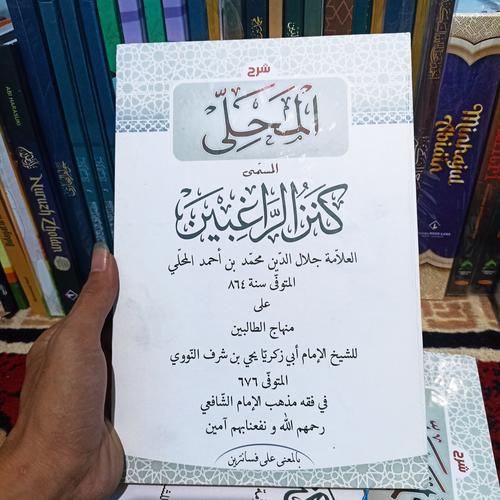 شرح
المَحَلِّى
المسمّى
كَنْزُ الرَّاغِبِيْنَ
العلاّمة جلال الدّين محمّد بن أحمد المحلّي
المتوفّى سنة ٨٦٤
على
منهاج الطالبين
للشيخ الإمام أبي زكريّا يحي بن شرف النّووي
المتوفّى ٦٧٦
في فقه مذهب الإمام الشّافعي
رحمهم الله و نفعنابهم آمين
بالمعنى على فسانترين
Minhajul Abidin
Nuruzh Zholam
شرح